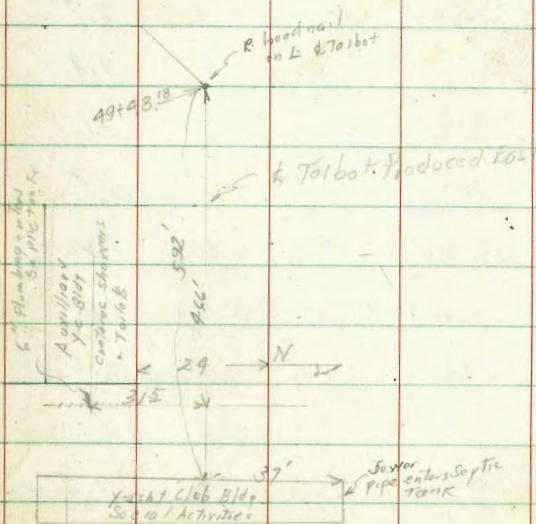 R. head nail
on L & Talbot
49+48.18
₵ Talbot Produced Eas
6" Plumbing enters
Septic tank
Auxiliary
Y-C Bldg
Contains Showers
+ Toilets
592'
466'
24
N
31.5
37'
Sewer
pipe enters Septic
Tank
Yacht Club Bldg
Social Activities